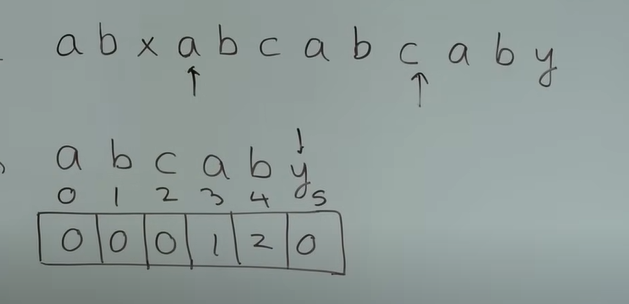 a b x a b c a b c a b y
a b c a b y
0 1 2 3 4 5
0 0 0 1 2 0